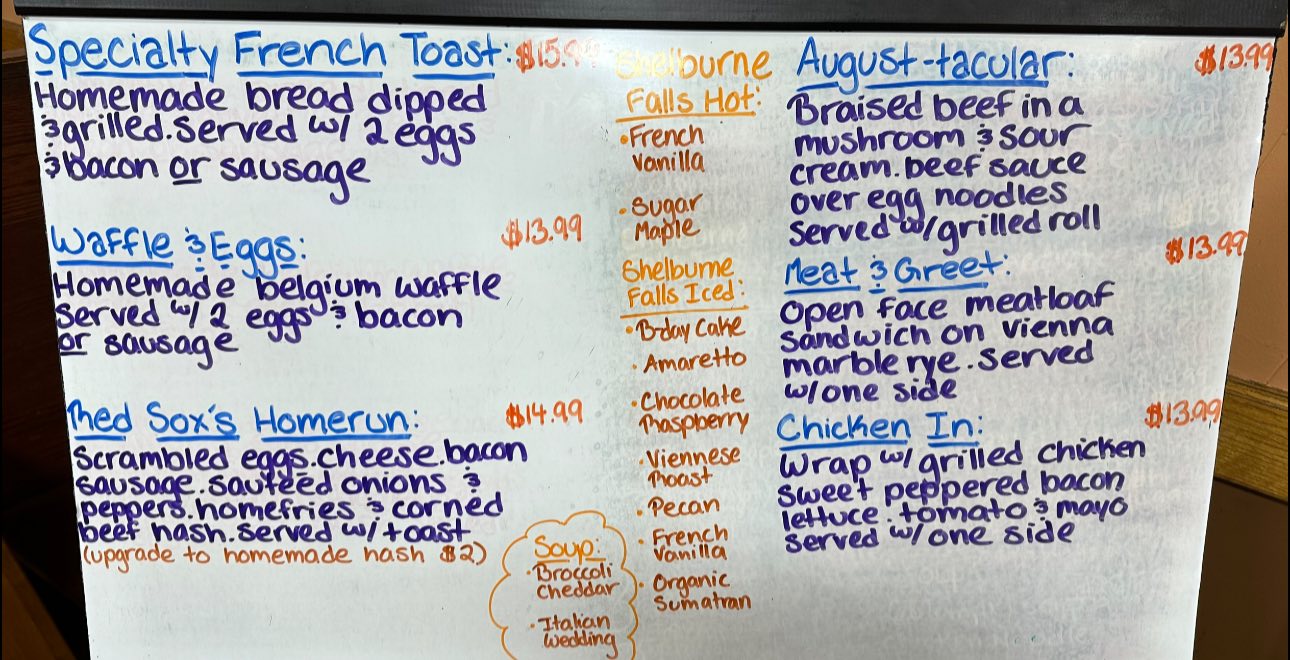 Specialty French Toast: $15.99
Homemade bread dipped
& grilled. Served w/ 2 eggs
& bacon or sausage
Waffle & Eggs: $13.99
Homemade belgium waffle
Served w/ 2 eggs & bacon
or sausage
Red Sox's Homerun: $14.99
Scrambled eggs. cheese. bacon
sausage. sauteed onions &
peppers. homefries & corned
beef hash. Served w/ toast
(upgrade to homemade hash $2)
Soup:
• Broccoli
Cheddar
• Italian
Wedding
Shelburne
Falls Hot:
• French
Vanilla
• Sugar
Maple
Shelburne
Falls Iced:
• B-day Cake
• Amaretto
• Chocolate
Raspberry
• Viennese
Roast
• Pecan
• French
Vanilla
• Organic
Sumatran
August-tacular: $13.99
Braised beef in a
mushroom & sour
cream. beef sauce
over egg noodles
Served w/ grilled roll
Meat & Greet: $13.99
Open face meatloaf
Sandwich on vienna
marble rye. Served
w/ one side
Chicken In: $13.99
Wrap w/ grilled chicken
sweet peppered bacon
lettuce. tomato & mayo
served w/ one side